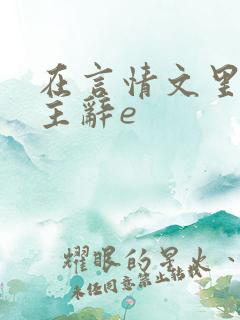 在言情文里
主辭e
耀眼的星火、
未经同意禁止转载